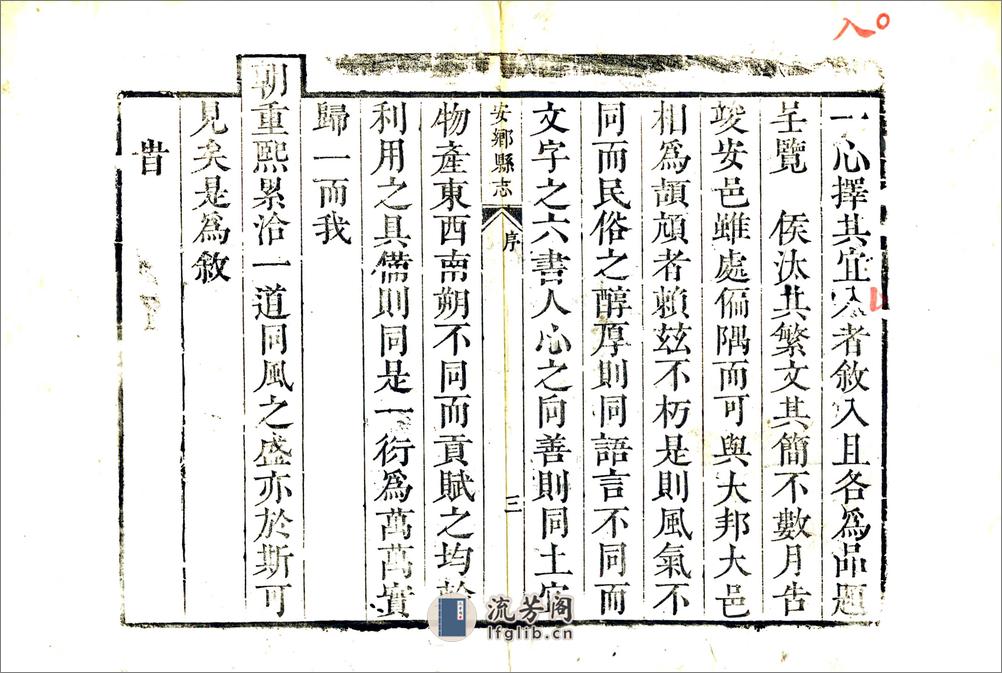 一心擇其宜入者敘入且各爲品題
呈覽　侯汰其繁文其簡不數月告
竣安邑雖處偏隅而可與大邦大邑
相爲頡頏者賴茲不朽是則風氣不
同而民俗之醇厚則同語言不同而
文字之六書人心之向善則同土宜
安鄉縣志
序
三
物產東西南朔不同而貢賦之均於
利用之具備則同是一衍爲萬萬實
歸一而我
朝重熙累洽一道同風之盛亦於斯可
見矣是爲敘
昔
流芳阁
lfglib.cn
入